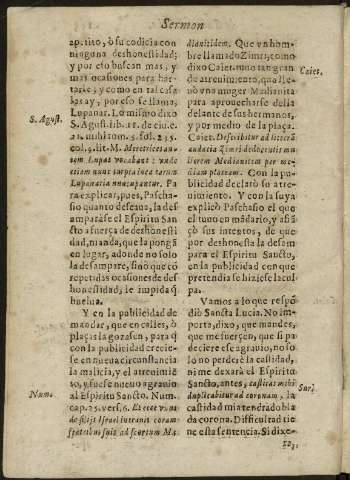 Sermon
apetito, ò su codicia con
ninguna deshonestidad;
y por esto buscan mas, y
mas ocasiones para har-
tarse; y como en tal casa
las ay; por eso se llama,
Lupanar. Lo mismo dixo
S. Agust.
S. Agust. lib. 18. de ciu. c.
21. mihi tom. 5. fol. 235.
col. 3. lit. M. Meretrices au-
tem Lupas vocabant: unde
etiam nunc turpia loca earum
Lupanaria nuncupantur. Pa
ra explicar, pues, Pascha-
sio quanto desseaua, la des
amparàse el Espiritu San
cto a fuerça de deshonesti
dad, manda, que la pongã
en lugar, adonde no solo
la desampare, sinó que cõ
repetidas ocasiones de des
honestidad, le impida q̃
buelua.
Y en la publicidad de
mandar, que en calles, ò
plaças la gozasen, para q̃
con la publicidad crecie-
se en nueua circunstancia
la malicia, y el atreuimiẽ
to, y fuese nueuo agrauio
Num.
al Espiritu Sancto. Num.
cap. 25. vers. 6. Et ecce vnus
de filijs Israel intrauit coram
fratribus suis ad scortum Ma
dianitidem. Que vn hom-
bre llamado Zimri, como
Caiet.
dixo Caiet. tuuo tan gran
de atreuimiento, que lle-
uò vna muger Madianita
para aprouecharse della
delante de sus hermanos,
y por medio de la plaça.
Caiet. Describitur ad litterã
audacia Zimri deducentis mu
lierem Medianitem per me-
diam plateam. Con la pu-
blicidad declarò su atre-
uimiento. Y con la suya
explicò Paschasio el que
el tuuo en mãdarlo, y afiã
çò sus intentos, de que
por deshonesta la desam
para el Espiritu Sancto,
en la publicidad con que
pretendia se hiziese la cul
pa.
Vamos a lo que respõ
diò Sancta Lucia. No im-
porta, dixo, que mandes,
que me fuercen, que si pa
deciere ese agrauio, no so
lo no perderè la castidad,
ni me dexarà el Espiritu
Sancto, antes, castitas mihi
Sur.
duplicabitur ad coronam, la
castidad mia tendrà dobla
da corona. Difficultad tie
ne esta sentencia. Si dixe-